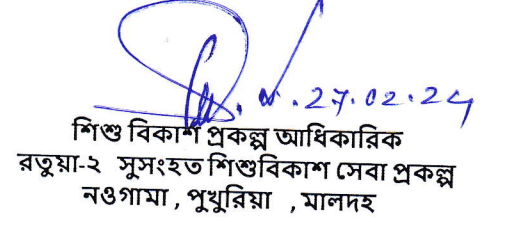 27.02.24
শিশু বিকাশ প্রকল্প আধিকারিক
রতুয়া-২ সুসংহত শিশুবিকাশ সেবা প্রকল্প
নওগামা , পুখুরিয়া , মালদহ